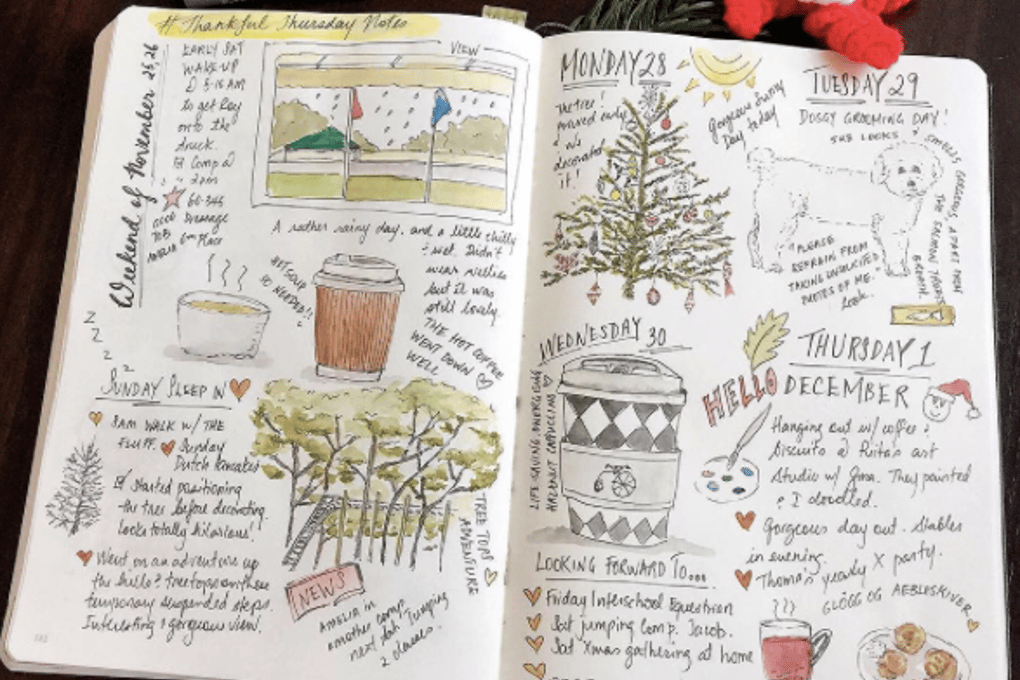 # Thankful Thursday Notes
Weekend of November 25, 26
EARLY SAT
WAKE-UP
@ 5-15 AM
to get Ray
onto the
truck.
Comp @
2pm
60.345
GOOD
JOB
AMELIA
Dressage
6th Place
VIEW
A rather rainy day, and a little chilly
& wet. Didn't
wear wellies
but it was
still lovely.
THE HOT COFFEE
WENT DOWN
WELL
HOT SOUP
SO NEEDED!!
Z
Z
Z
Z
SUNDAY SLEEP IN
8AM WALK W/ THE
FLUFF.
Sunday
Dutch Pancakes
Started positioning
the tree before decorating.
Looks totally hilarious!
Went on an adventure up
the hills & treetops on these
temporary suspended steps.
Interesting & gorgeous view.
TREE TOPS
ADVENTURE
NEWS
AMELIA in
another comp
next Sat. Jumping
2 classes.
MONDAY 28
The tree!
arrived early
& we
decorated
it!
Gorgeous sunny
Day today
TUESDAY 29
DOGGY GROOMING DAY!
SHE LOOKS &
SMELLS GORGEOUS, APART FROM
THE PRAWN TREATS
BREATH.
"PLEASE
REFRAIN FROM
TAKING UNSOLICITED
PHOTOS OF ME."
Look.
WEDNESDAY 30
LIFE-SAVING, ENERGISING
HAZELNUT CAPPUCCINO
THURSDAY 1
HELLO DECEMBER
Hanging out w/ coffee &
Biscuits @ Rita's art
Studio w/ They painted
& I doodled.
Gorgeous day out. Stables
in evening.
Thoma's yearly X party.
GLÖGG OG AEBLESKIVER
LOOKING FORWARD TO...
Friday Interschool Equestrian
Sat jumping Comp. Jacob.
Sat Xmas gathering at home